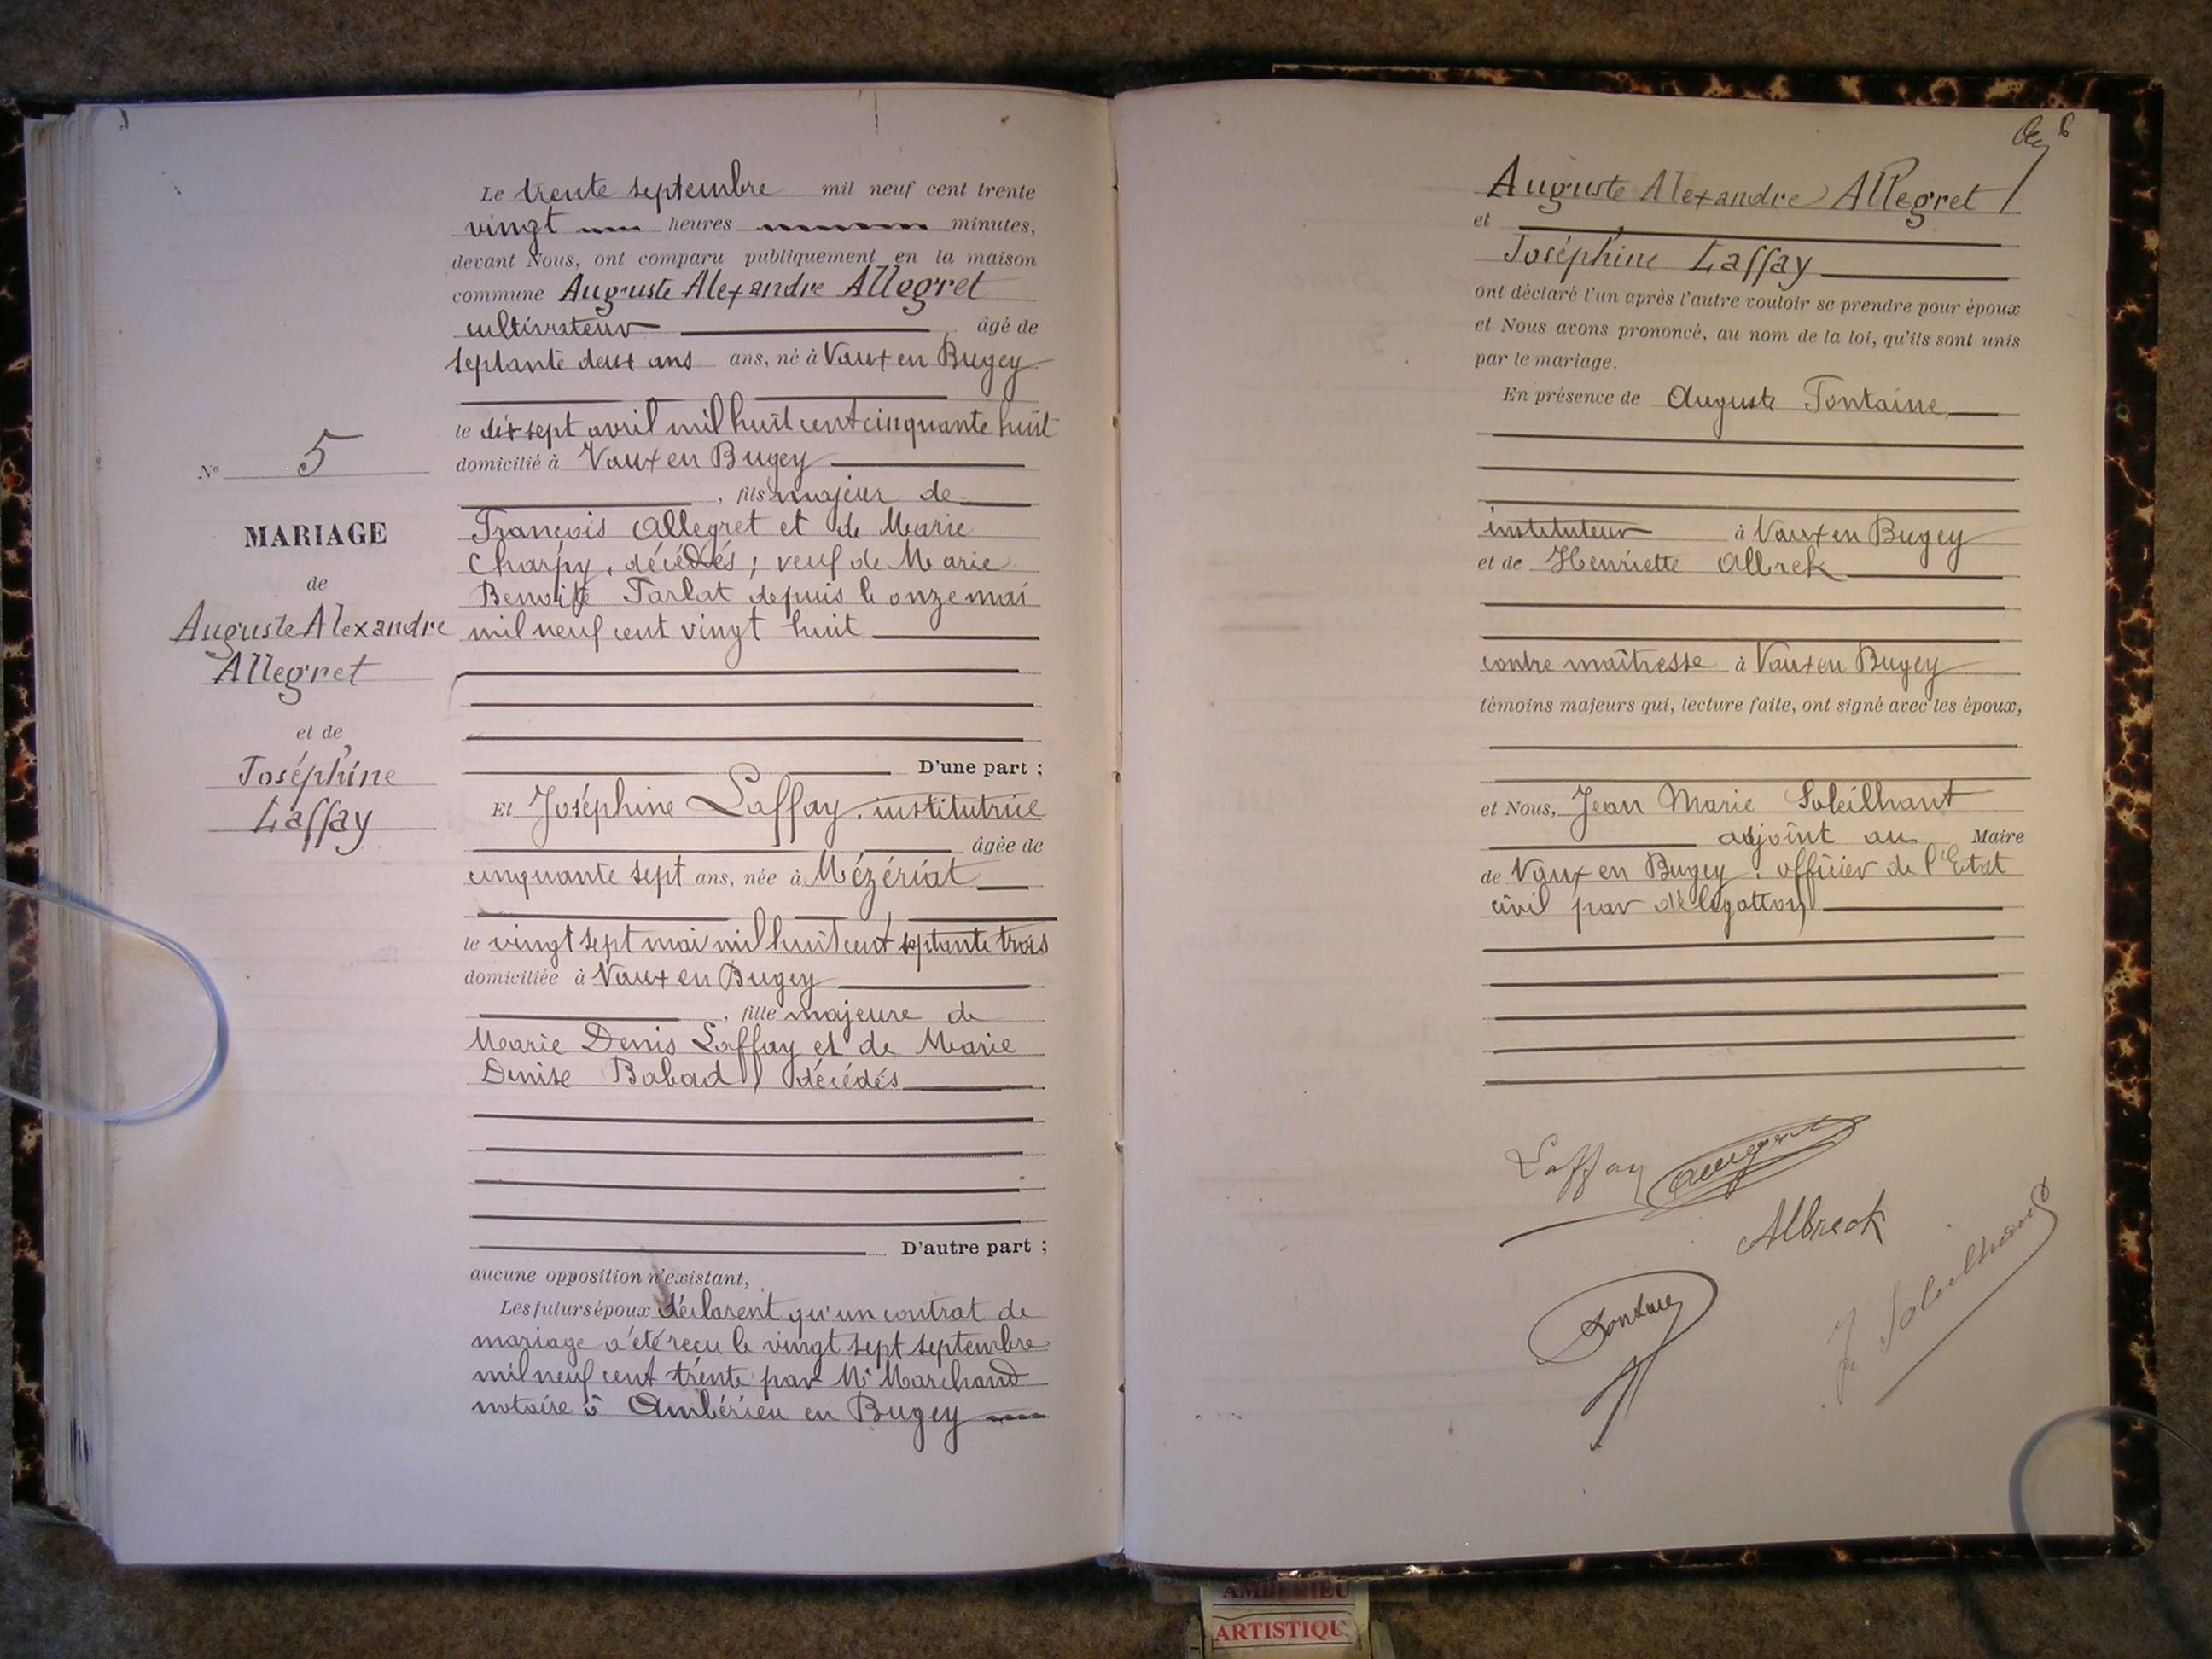 Le trente septembre mil neuf cent trente
vingt heures minutes,
devant Nous, ont comparu publiquement en la maison
commune Auguste Alexandre Allegret
cultivateur âgé de
septante deux ans ans, né à Vaux en Bugey
le dix sept avril mil huit cent cinquante huit
domicilié à Vaux en Bugey
, fils majeur de
François Allegret et de Marie
Charpy, décédés ; veuf de Marie
Benoite Tarlat depuis le onze mai
mil neuf cent vingt huit
D'une part ;
Et Joséphine Laffay, institutrice
âgée de
cinquante sept ans, née à Mézériat
le vingt sept mai mil huit cent septante trois
domiciliée à Vaux en Bugey
, fille majeure de
Marie Denis Laffay et de Marie
Denise Babad, décédés
D'autre part ;
aucune opposition n'existant,
Les futurs époux déclarent qu'un contrat de
mariage a été reçu le vingt sept septembre
mil neuf cent trente par Me Marchand
notaire à Ambérieu en Bugey
N° 5
MARIAGE
de
Auguste Alexandre
Allegret
et de
Joséphine
Laffay
6
Auguste Alexandre Allegret
et
Joséphine Laffay
ont déclaré l'un après l'autre vouloir se prendre pour époux
et Nous avons prononcé, au nom de la loi, qu'ils sont unis
par le mariage.
En présence de Auguste Fontaine,
instituteur à Vaux en Bugey
et de Henriette Albrek
contre maîtresse à Vaux en Bugey
témoins majeurs qui, lecture faite, ont signé avec les époux,
et Nous, Jean Marie Soleilhant
adjoint au Maire
de Vaux en Bugey, officier de l'Etat
civil par délégation
Laffay
Albreck
Fontaine
J Soleilhant
AMBERIEU
ARTISTIQU